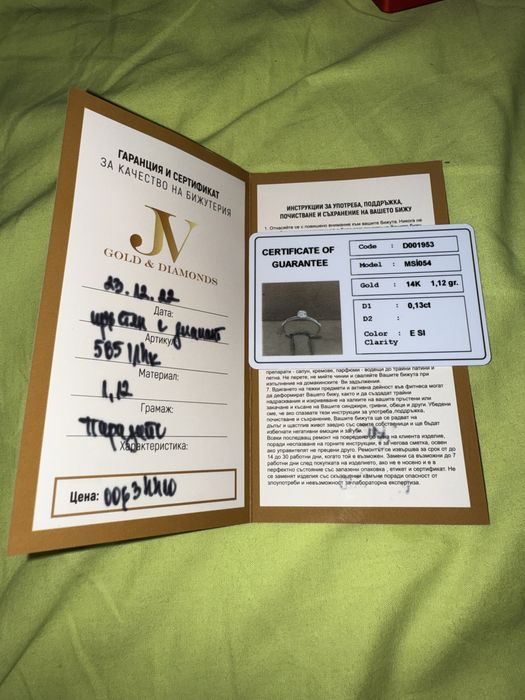 ГАРАНЦИЯ И СЕРТИФИКАТ
ЗА КАЧЕСТВО НА БИЖУТЕРИЯ
JV
GOLD & DIAMONDS
23.12.22
Дата:
пръстен с диамант
Артикул
585 / 14к
Материал:
1,12
Грамаж:
Характеристика:
Цена:
ИНСТРУКЦИИ ЗА УПОТРЕБА, ПОДДРЪЖКА,
ПОЧИСТВАНЕ И СЪХРАНЕНИЕ НА ВАШЕТО БИЖУ
1. Отнасяйте се с повишено внимание към вашите бижута. Никога не
CERTIFICATE OF
GUARANTEE
Code : D001953
Model : MSi054
Gold : 14K 1,12 gr.
D1 : 0,13ct
D2 :
Color : E SI
Clarity
препарати - сапун, кремове, парфюми - водещи до трайни патини и
петна. Не перете, не мийте чинии и сваляйте Вашите бижута при
изпълнение на домакинските Ви задължения.
7. Вдигането на тежки предмети и активна дейност във фитнеса могат
да деформират Вашето бижу, както и да създадат трайни
надрасквания и изкривяване на халките на вашите пръстени или
закачане и късане на Вашите синджири, гривни, обеци и други. Убедени
сме, че ако спазвате тези инструкции за употреба, поддръжка,
почистване и съхранение, Вашите бижута ще се радват на
дълъг и щастлив живот заедно със своите собственици и ще бъдат
избегнати негативни емоции и загуби.
Всеки последващ ремонт на повредено от клиента изделие,
поради неспазване на горните инструкции, е за негова сметка, освен
ако управителят не прецени друго. Ремонтът се извършва за срок от до
14 до 30 работни дни, когато той е възможен. Замени са възможни до 7
работни дни след покупката на изделието, ако не е носено и е в
перфектно състояние със запазени опаковка, етикет и сертификат. Не
се заменят изделия със скъпоценни камъни поради опасност от
злоупотреби и невъзможност за лабораторна експертиза.